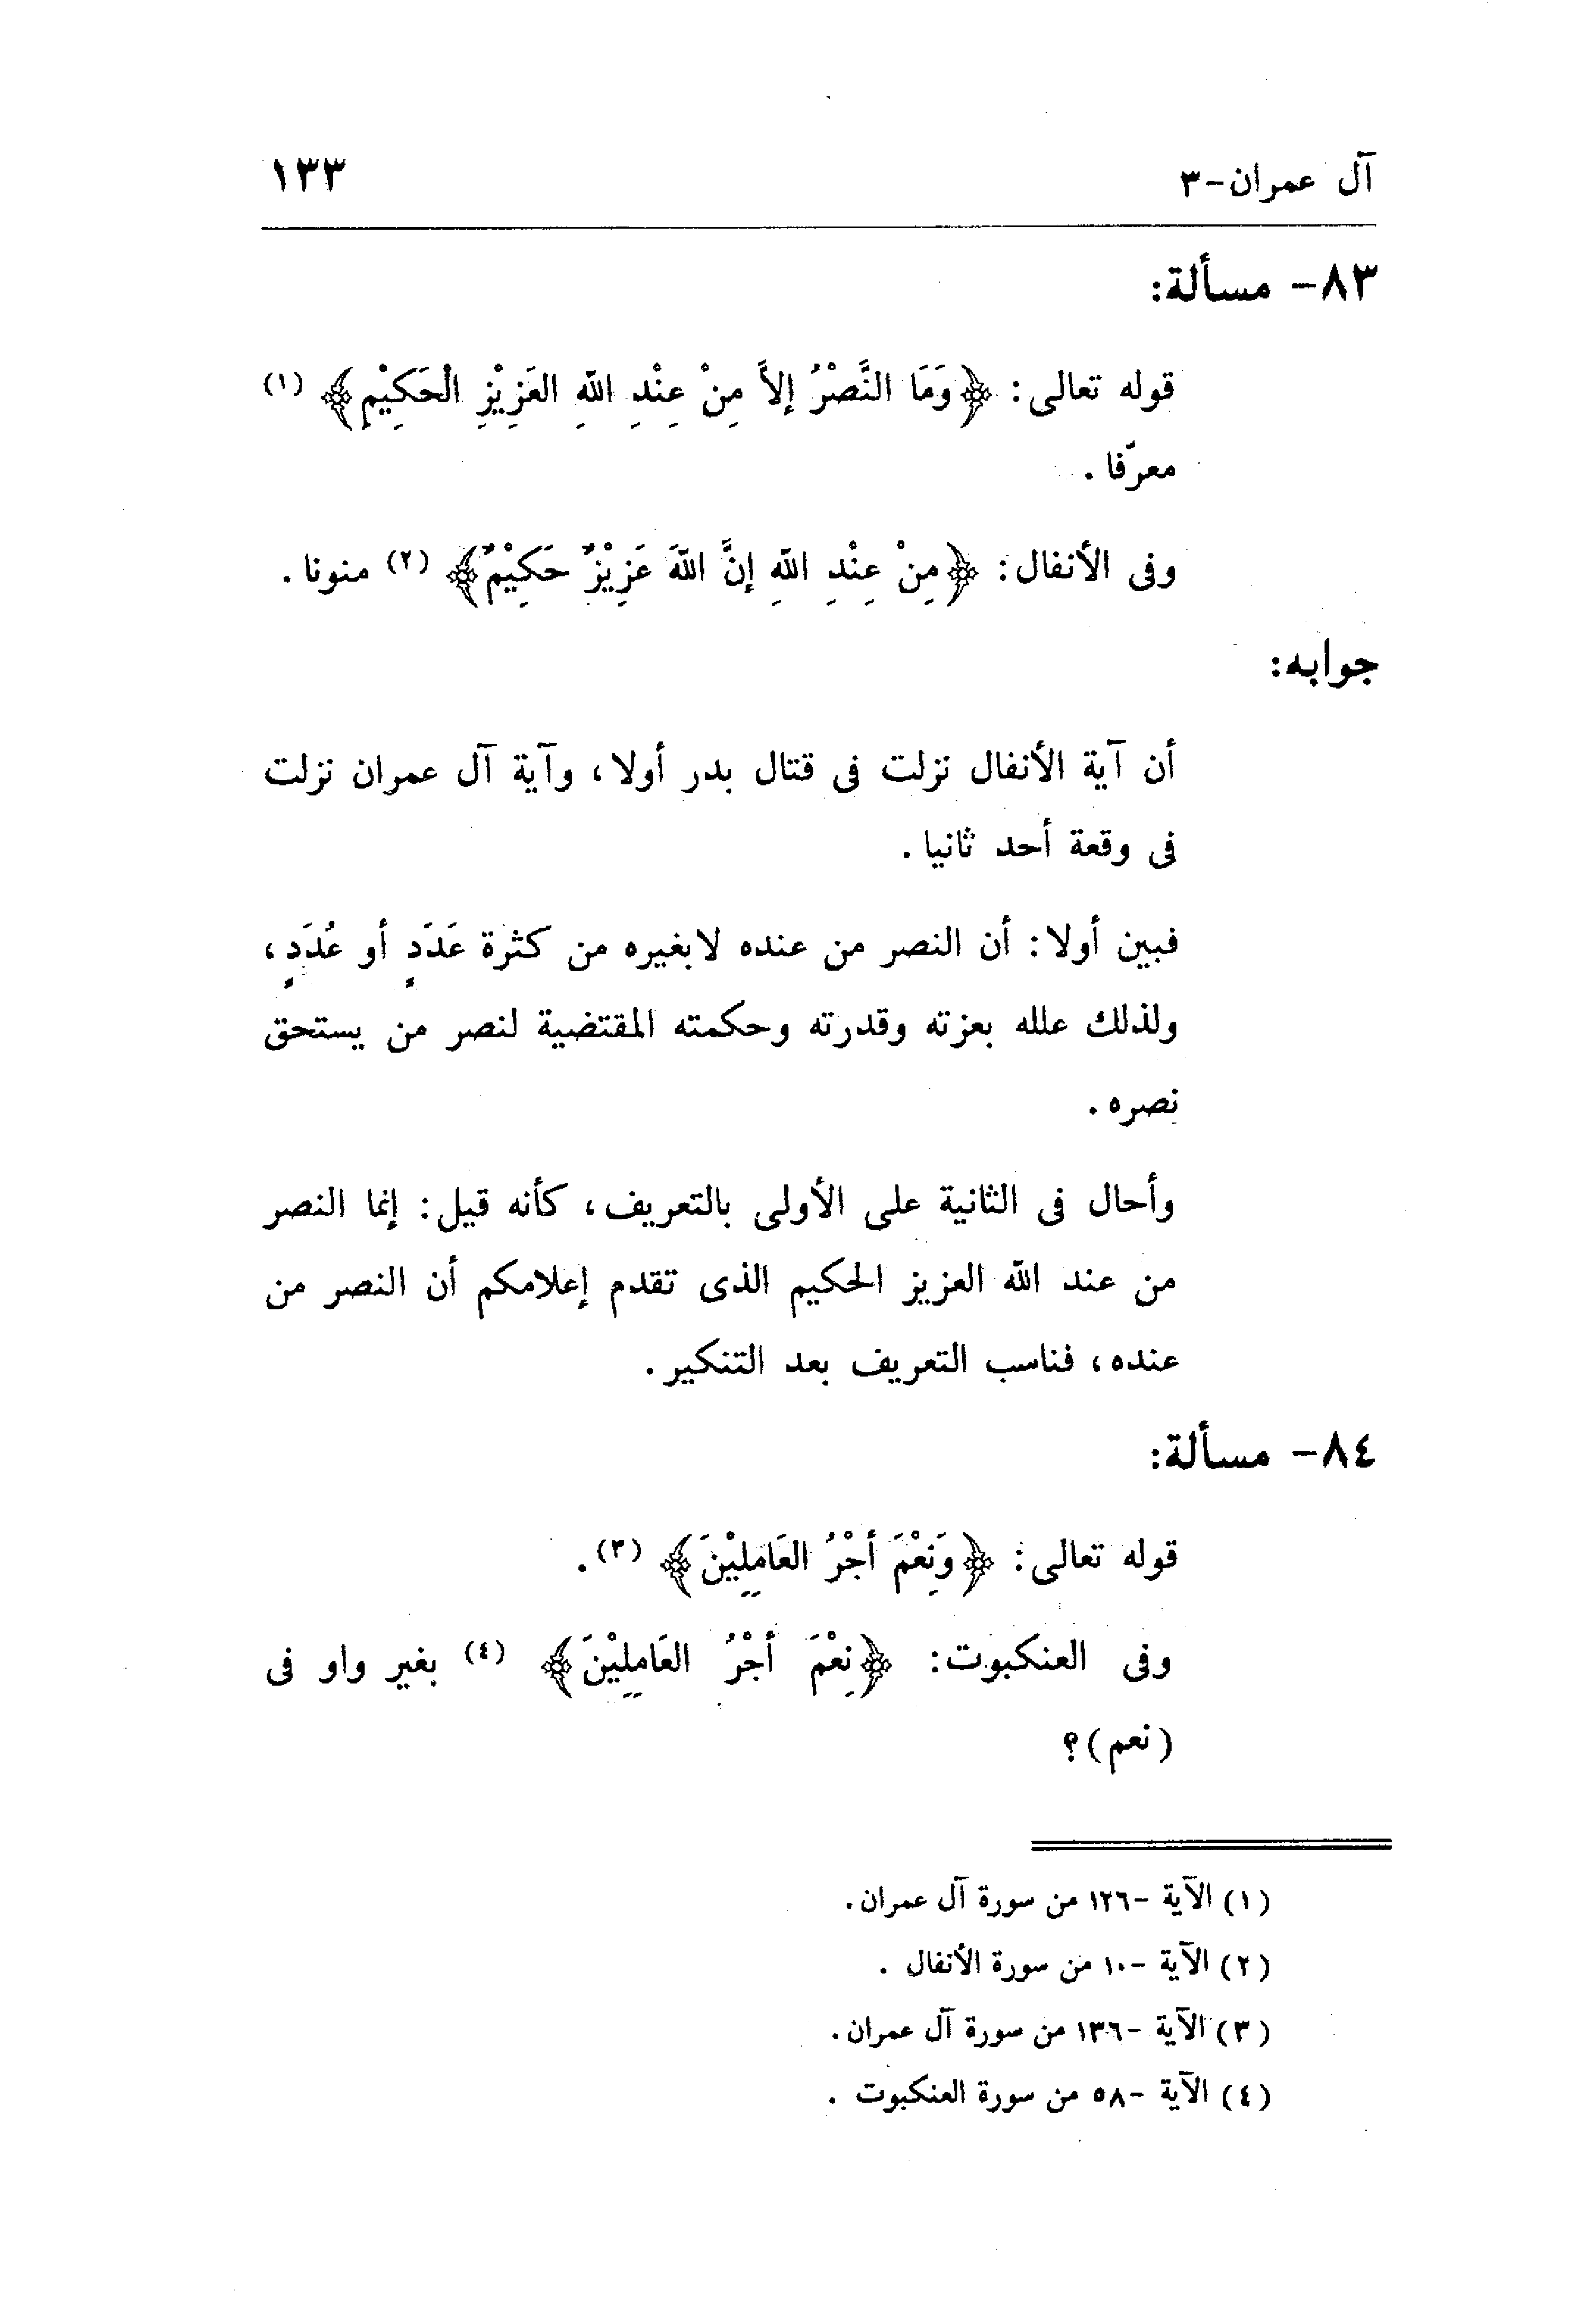 آل عمران-٣
١٣٣
٨٣- مسألة:
قوله تعالى: ﴿وَمَا النَّصْرُ إلاَّ مِنْ عِنْدِ اللهِ العَزِيْزِ الْحَكِيْمِ﴾ (١)
معرّفا .
وفى الأنفال: ﴿مِنْ عِنْدِ اللهِ إنَّ اللهَ عَزِيْزٌ حَكِيْمٌ﴾ (٢) منونا .
جوابه:
أن آية الأنفال نزلت فى قتال بدر أولا، وآية آل عمران نزلت
فى وقعة أحد ثانيا .
فبين أولا: أن النصر من عنده لابغيره من كثرة عَدَدٍ أو عُدَدٍ،
ولذلك علله بعزته وقدرته وحكمته المقتضية لنصر من يستحق
نصره .
وأحال فى الثانية على الأولى بالتعريف، كأنه قيل: إنما النصر
من عند الله العزيز الحكيم الذى تقدم إعلامكم أن النصر من
عنده، فناسب التعريف بعد التنكير .
٨٤- مسألة:
قوله تعالى: ﴿وَنِعْمَ أجْرُ العَامِلِيْنَ﴾ (٣) .
وفى العنكبوت: ﴿نِعْمَ أجْرُ العَامِلِيْنَ﴾ (٤) بغير واو فى
(نعم)؟
(١) الآية -١٢٦ من سورة آل عمران.
(٢) الآية -١٠ من سورة الأنفال .
(٣) الآية -١٣٦ من سورة آل عمران.
(٤) الآية -٥٨ من سورة العنكبوت .